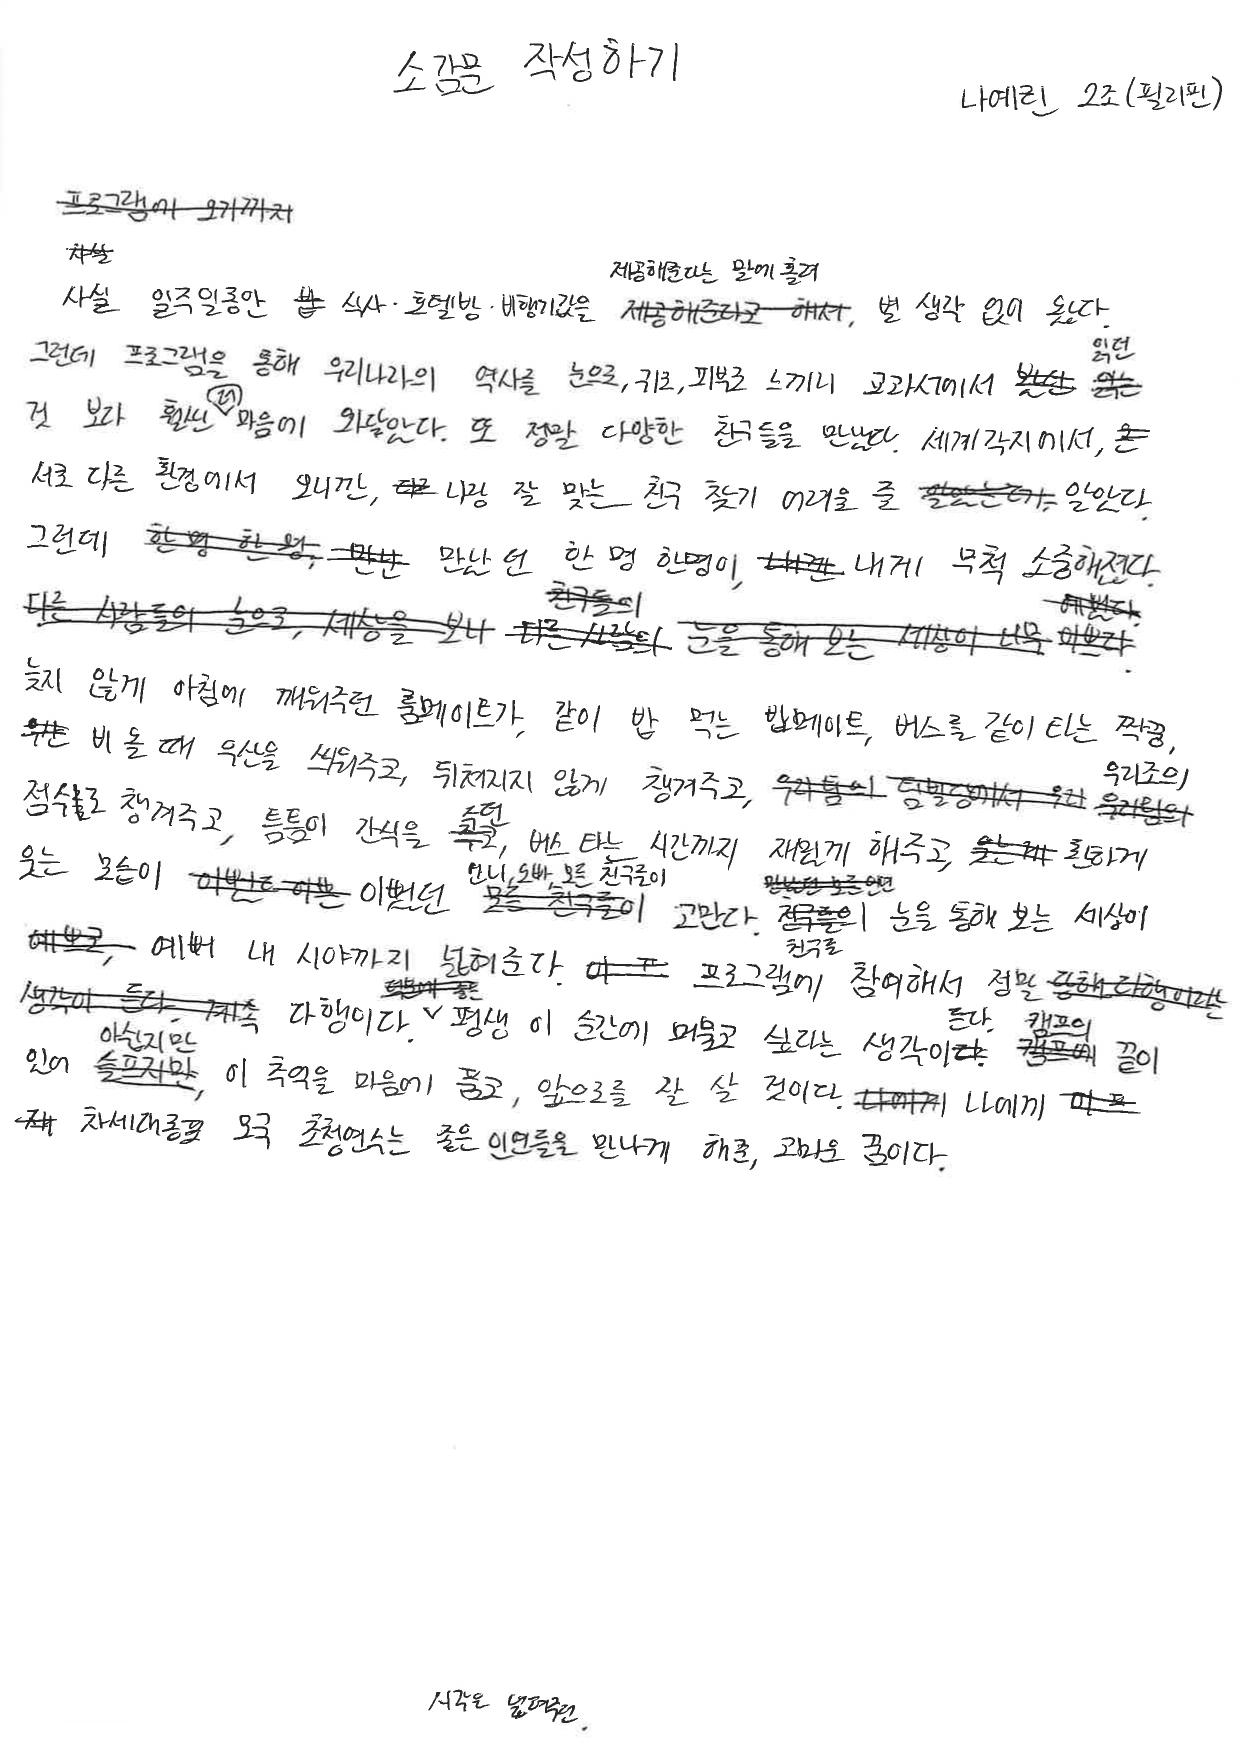 소감문 작성하기
나예린 2조(필리핀)
프로그램에 오기까지
사실
제공해준다는 말에 홀려
사실 일주일동안 밥 식사·호텔방·비행기값은 제공해준다고 해서, 별 생각 없이 왔다.
읽던
그런데 프로그램을 통해 우리나라의 역사를 눈으로, 귀로, 피부로 느끼니 교과서에서 읽는
더
것 보다 훨씬 마음에 와닿았다. 또 정말 다양한 친구들을 만났다. 세계각지에서,
서로 다른 환경에서 오니깐, 나랑 잘 맞는 친구 찾기 어려울 줄 알았다.
그런데 한 명 한 명, 만난 만났던 한 명 한명이, 내게 무척 소중해졌다.
친구들의 예쁘다.
다른 사람들의 눈으로, 세상을 보니 다른 사람의 눈을 통해 보는 세상이 너무 이쁘다.
늦지 않게 아침에 깨워주던 룸메이트가, 같이 밥 먹는 밥메이트, 버스를 같이 타는 짝꿍,
우산 비 올 때 우산을 씌워주고, 뒤처지지 않게 챙겨주고, 우리팀의 텀블링에서 우리 우리팀의
우리조의
점수를 챙겨주고, 틈틈이 간식을 주고, 버스 타는 시간까지 재밌게 해주고, 웃는게 환하게
주던
웃는 모습이 이뻤던 언니, 오빠, 모든 친구들이
모든 친구들이 고맙다. 친구들의 눈을 통해 보는 세상이
친구로
예쁘고, 예뻐 내 시야까지 넓혀준다. 이 프 프로그램에 참여해서 정말 다행이라는
생각이 든다. 계속 다행이다. 평생 이 순간에 머물고 싶다는 생각이다. 캠프의 끝이
든다. 캠프의
아쉽지만
있어 슬프지만, 이 추억을 마음에 품고, 앞으로를 잘 살 것이다. 나에게 나에게 이 프
차세대동포 모국 초청연수는 좋은 인연들을 만나게 해준, 고마운 꿈이다.
시각을 넓혀주던.